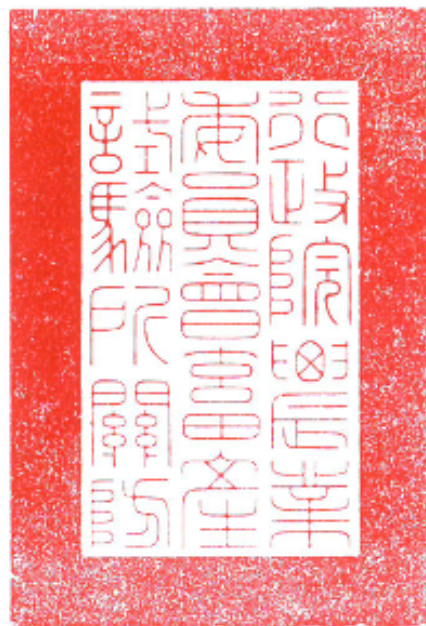 行政院農業
委員會畜產
試驗所關防